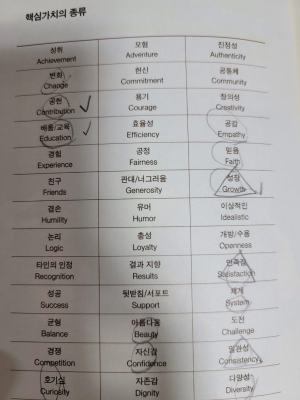 핵심가치의 종류
성취 모험 진정성
Achievement Adventure Authenticity
변화 헌신 공동체
Change Commitment Community
공헌 용기 창의성
Contribution Courage Creativity
배움/교육 효율성 공감
Education Efficiency Empathy
경험 공정 믿음
Experience Fairness Faith
친구 관대/너그러움 성장
Friends Generosity Growth
겸손 유머 이상적인
Humility Humor Idealistic
논리 충성 개방/수용
Logic Loyalty Openness
타인의 인정 결과 지향 만족감
Recognition Results Satisfaction
성공 뒷받침/서포트 체계
Success Support System
균형 아름다움 도전
Balance Beauty Challenge
경쟁 자신감 일관성
Competition Confidence Consistency
호기심 자존감 다양성
Curiosity Dignity Diversity